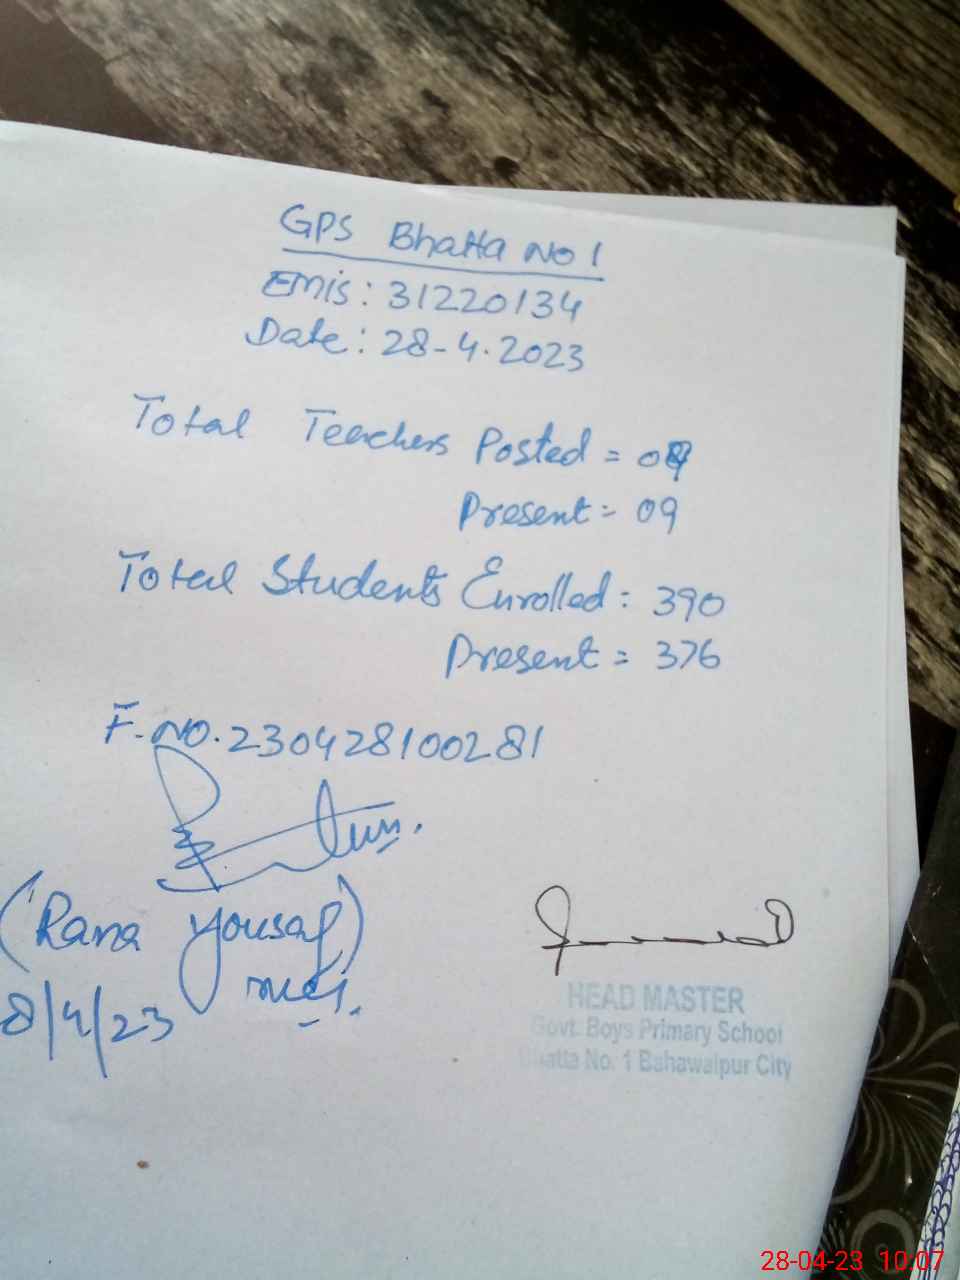 GPS Bhatta No 1
Emis: 31220134
Date: 28-4.2023
Total Teachers Posted = 09
Present = 09
Total Students Enrolled: 390
Present = 376
F.NO.230428100281
(Rana Yousaf)
8/4/23
HEAD MASTER
Govt. Boys Primary School
Bhatta No. 1 Bahawalpur City
28-04-23 10:07